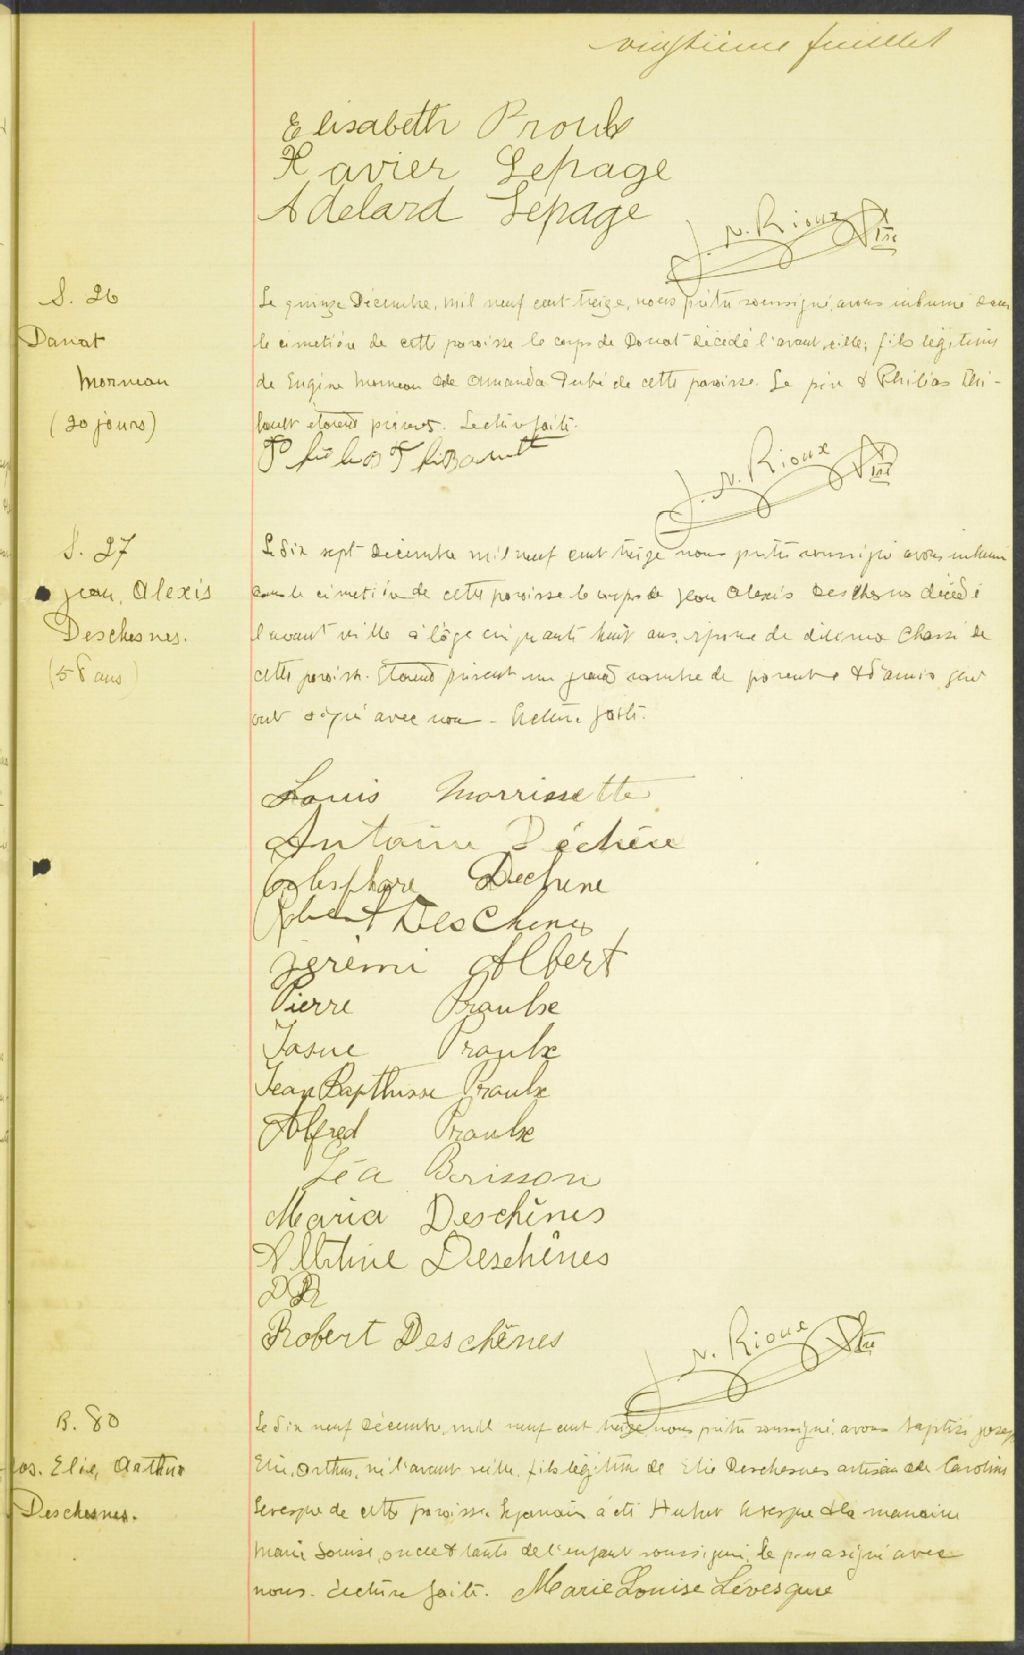 vingtième feuillet
Elisabeth Proulx
Xavier Lepage
Adelard Lepage
J. N. Rioux Ptre
S. 26
Donat
Morneau
(20 jours)
Le quinze Décembre, mil neuf cent treize, nous prêtre soussigné, avons inhumé dans
le cimetière de cette paroisse le corps de Donat décédé l'avant veille, fils légitime
de Eugène Morneau & de Amanda Dubé de cette paroisse. Le père & Philias Thi-
bault étaient présents. Lecture faite.
Philias Thibault
J. N. Rioux Ptre
S. 27
Jean, Alexis
Deschesnes.
(58 ans)
Le dix sept Décembre mil neuf cent treize nous prêtre soussigné avons inhumé
dans le cimetière de cette paroisse le corps de Jean Alexis Deschesnes décédé
l'avant veille à l'âge cinquante huit ans, époux de Chassé de
cette paroisse. Etaient présent un grand nombre de parents & d'amis, qui
ont signé avec nous - Lecture faite.
Louis Morrissette
Antoine Déchène
Télesphore Dechene
Robert DesChenes
Jerémi Albert
Pierre Proulx
Josue Proulx
Jean Bapthisse Proulx
Alfred Proulx
Léa Berisson
Maria Deschênes
Albertine Deschênes
Robert Deschênes
J. N. Rioux Ptre
B. 80
Jos. Elie, Arthur
Deschesnes.
Le dix neuf Décembre, mil neuf cent treize, nous prêtre soussigné, avons baptisé Joseph
Elie, Arthur, né l'avant veille, fils légitime de Elie Deschesnes artisan & de Caroline
Levesque de cette paroisse. Le parrain a été Levesque & la marraine
Marie Louise, oncle & tante de l'enfant soussigné, le père a signé avec
nous. Lecture faite. Marie Louise Lévesque